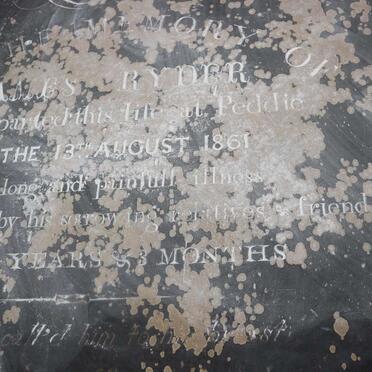 THE MEMORY OF
RYDER
parted this life at Peddie
THE 13TH AUGUST 1861
long and painfull illness
by his sorrowing relatives & friend
YEARS & 3 MONTHS
call'd him to